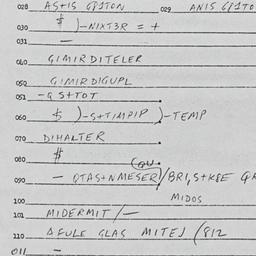 028 AS+IS GP1TON 029 ANIS GP1TO
$ )-NIXT3R = +
030
031 -
GIMIRDITELER
040
050 GIMIRDIGUPL
051 -QS+TOT
060 $ )-S+TIMPIP )-TEMP
070 DIHALTER
080 #
090 - QTAS+NMESER/BRI,S+K8E
100 MIDOS
101 MIDERMIT/-
110 AFULE GLAS MITEJ (812
011 -